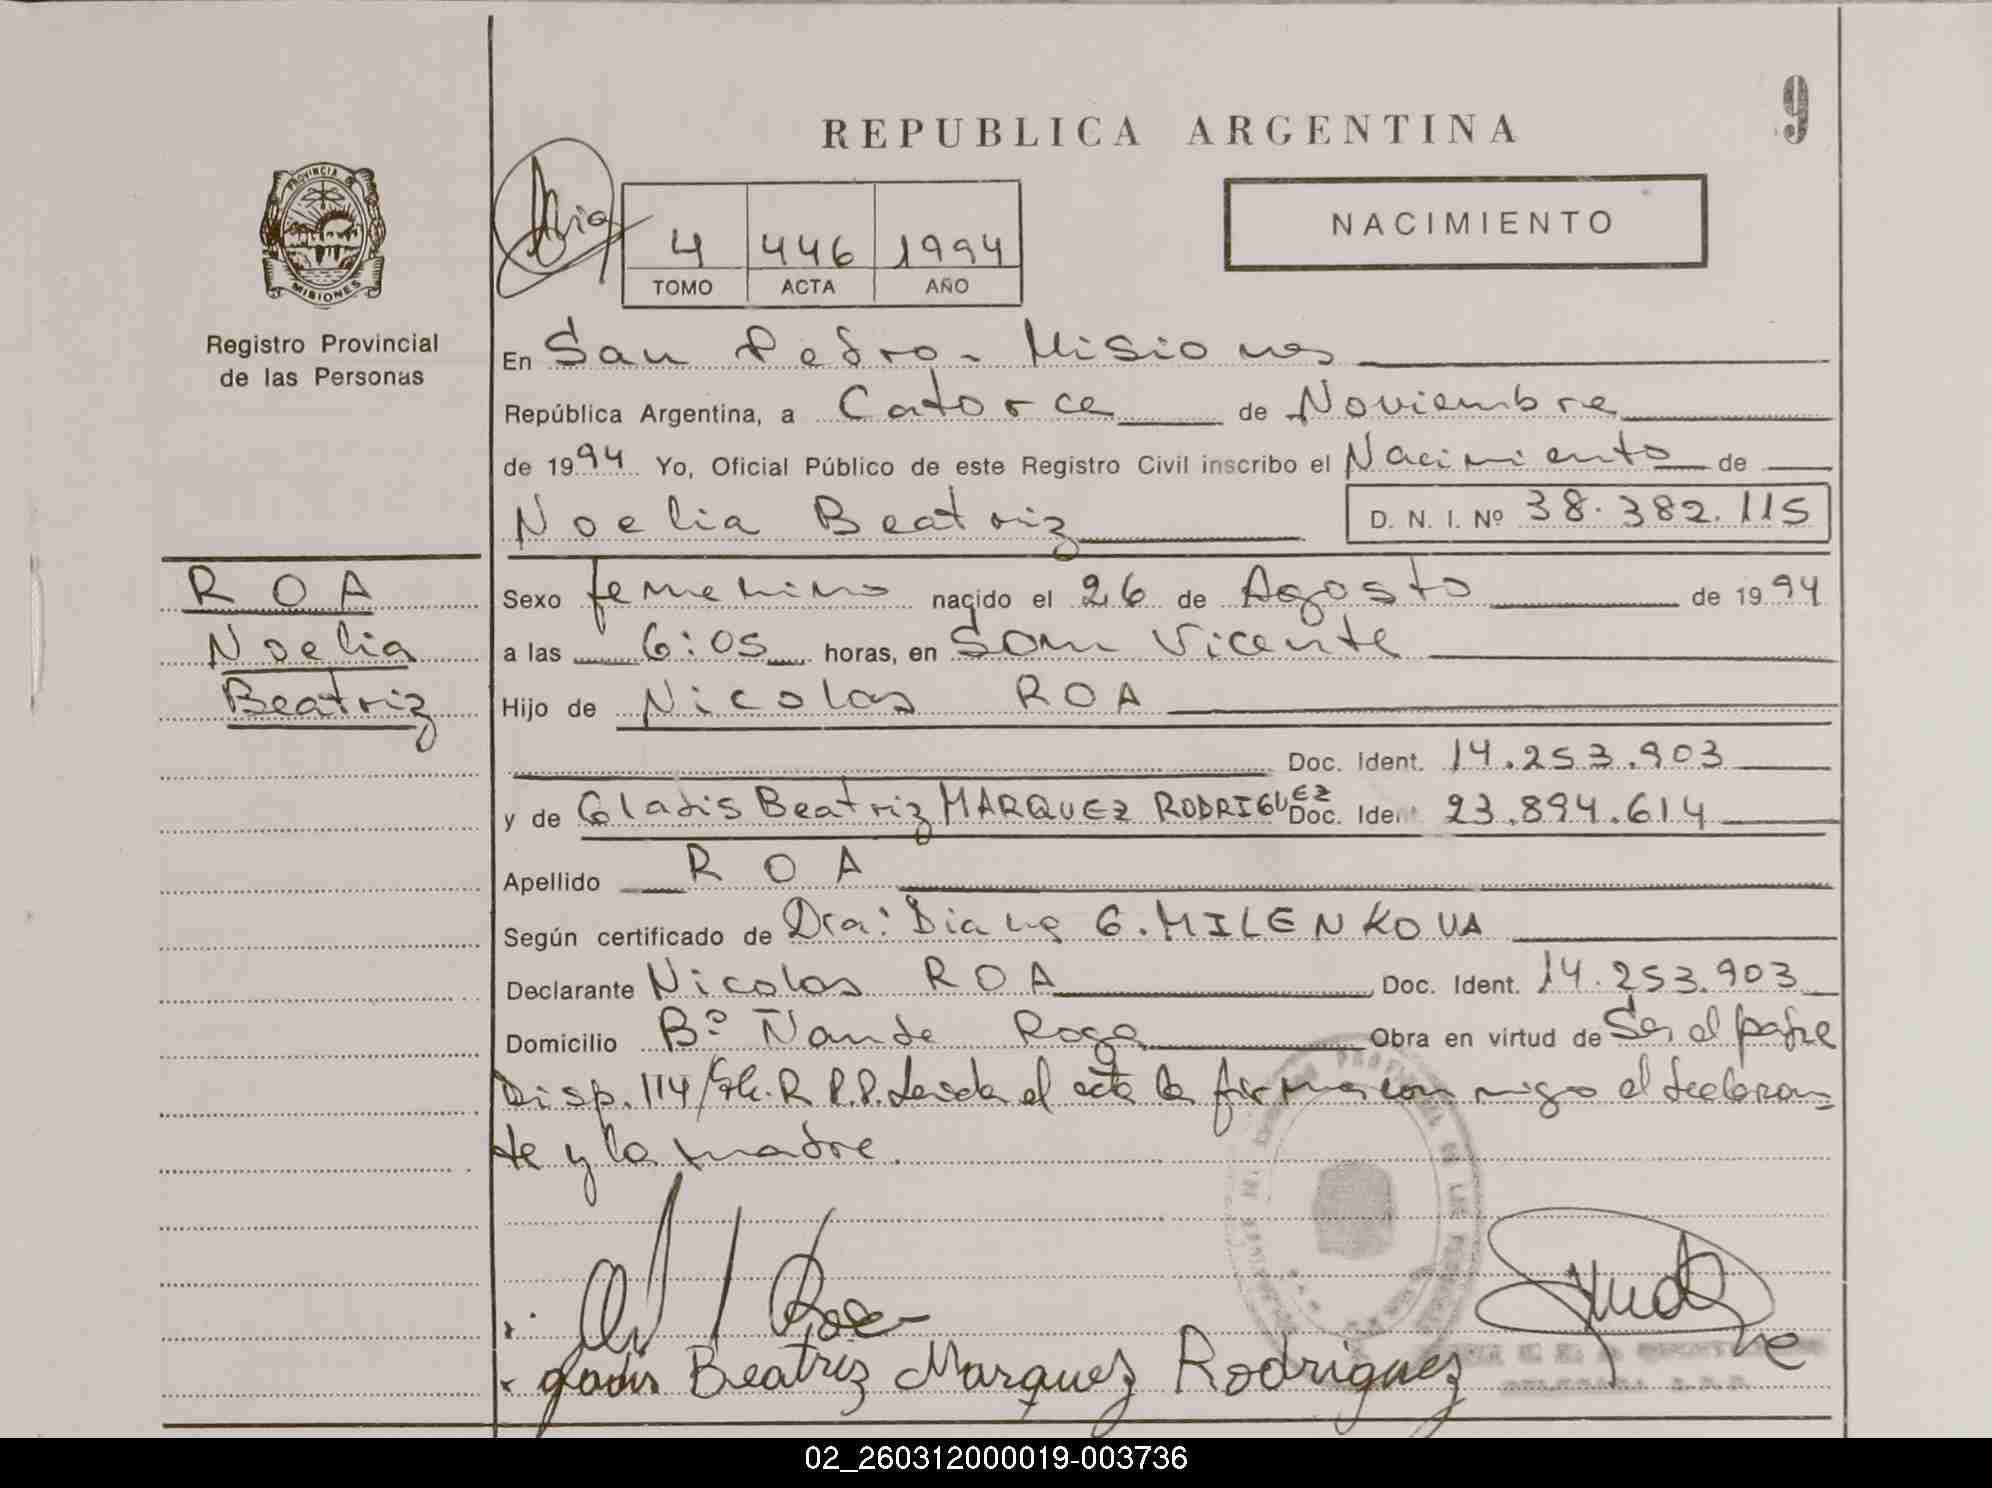 REPUBLICA ARGENTINA
9
PROVINCIA DE
MISIONES
Registro Provincial
de las Personas
4 446 1994
TOMO ACTA AÑO
NACIMIENTO
En San Pedro - Misiones
República Argentina, a Catorce de Noviembre
de 1994 Yo, Oficial Público de este Registro Civil inscribo el Nacimiento de
Noelia Beatriz D. N. I. Nº 38.382.115
ROA
Noelia
Beatriz
Sexo femenino nacido el 26 de Agosto de 1994
a las 6:05 horas, en San Vicente
Hijo de Nicolas ROA
Doc. Ident. 14.253.903
y de Gladis Beatriz MARQUEZ RODRIGUEZ Doc. Ident 23.894.614
Apellido ROA
Según certificado de Dra: Diana G. MILENKOVA
Declarante Nicolas ROA Doc. Ident. 14.253.903
Domicilio Bº Ñande Roga Obra en virtud de Ser el padre
Disp. 114/94. R.P.P. Leida el acta la firma con migo el declaran=
te y la madre.
Gladis Beatriz Marquez Rodriguez
02_260312000019-003736